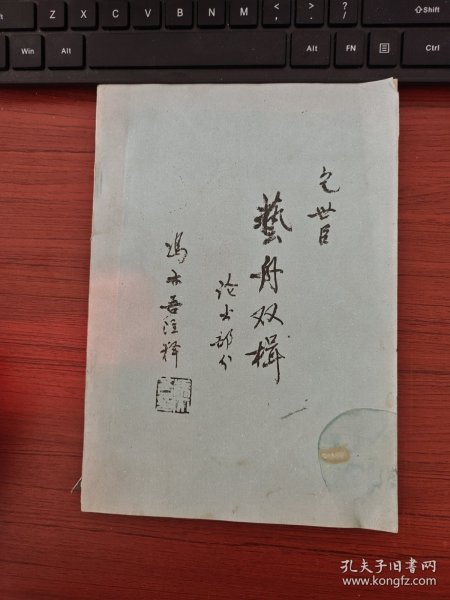 Z X C V B N M < > ? / Shift
Win Alt Alt FN Ctrl
包世臣
藝舟双楫
论书部分
冯亦吾注释
孔夫子旧书网
www.kongfz.com